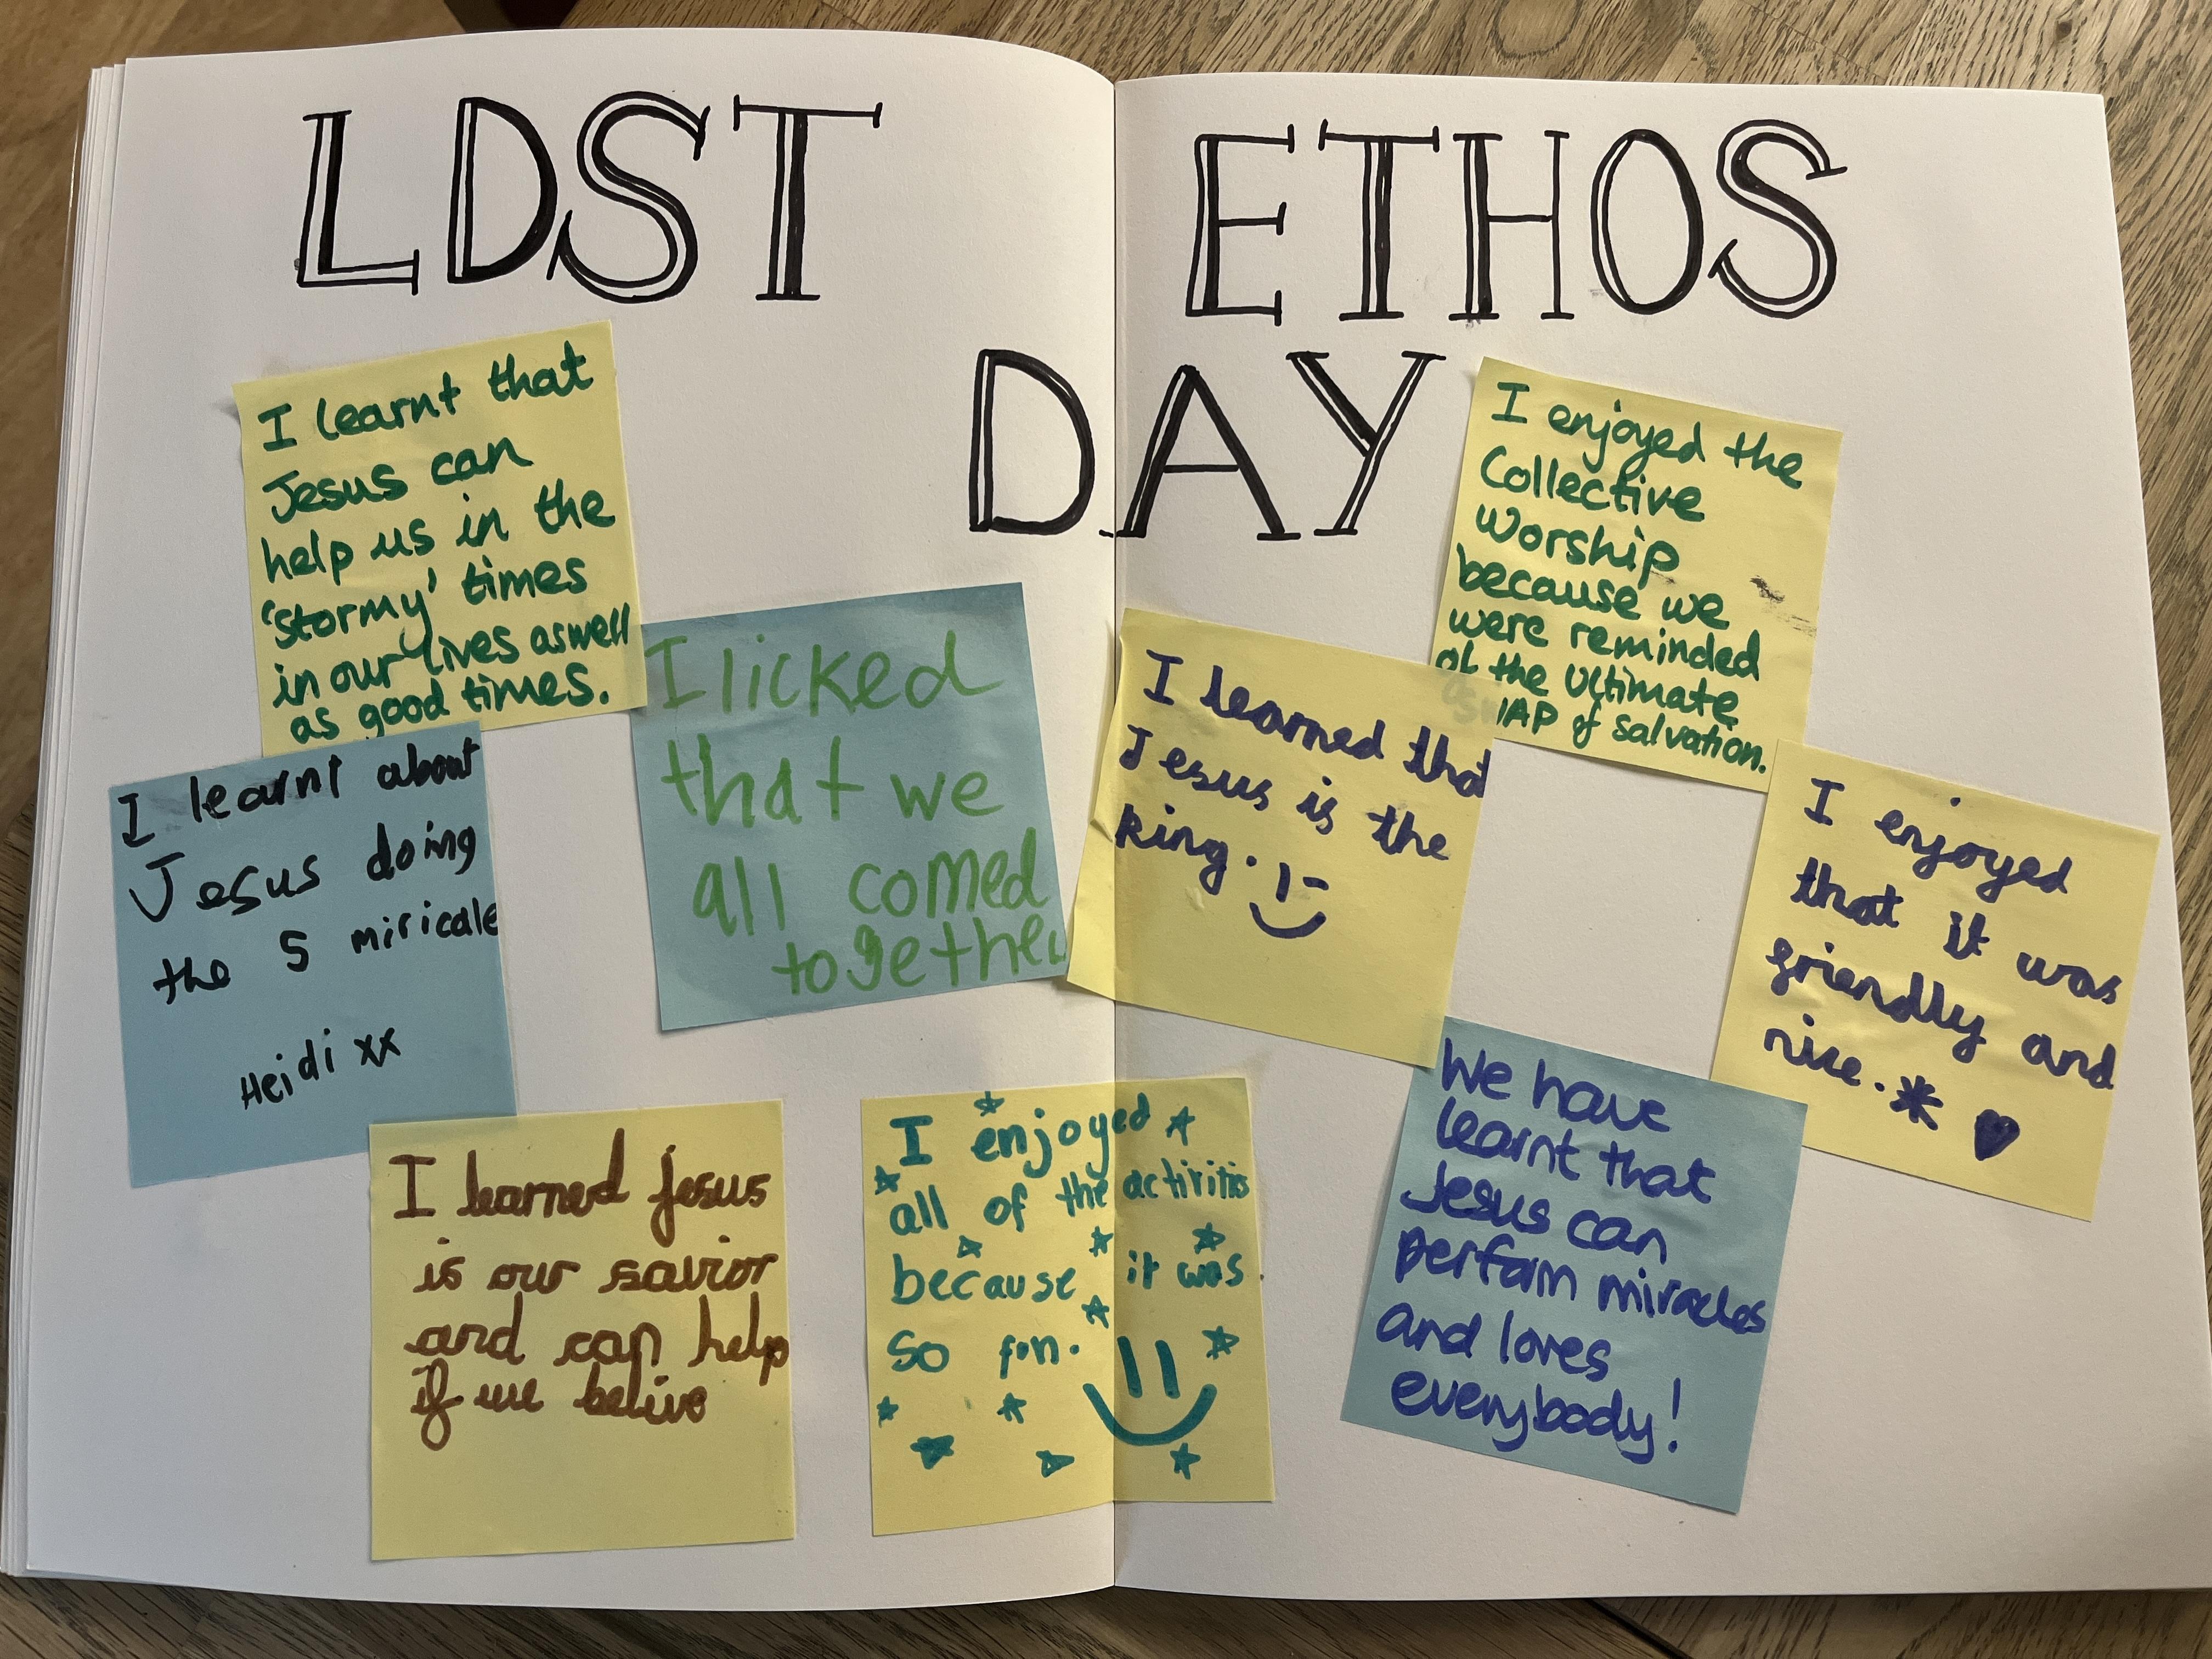 LDST ETHOS
DAY
I learnt that
Jesus can
help us in the
'stormy' times
in our lives aswell
as good times.
I licked
that we
all comed
together
I learnt about
Jesus doing
the 5 miricale
Heidi xx
I learned Jesus
is our savior
and can help
if we belive
I enjoyed
all of the activities
because it was
so fun.
I learned that
Jesus is the
king.
I enjoyed the
Collective
Worship
because we
were reminded
of the ultimate
of salvation.
I enjoyed
that it was
friendly and
nice.
We have
learnt that
Jesus can
perfom miracles
and loves
everybody!